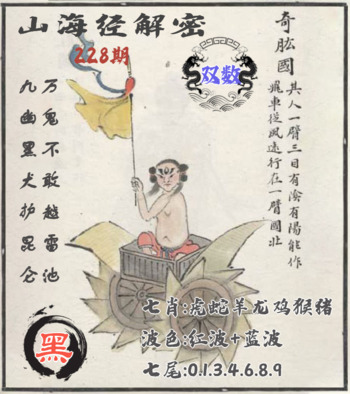 山海经解密
228期
双数
奇肱國
其人一臂三目有陰有陽能作
飛車從風遠行在一臂國北
万鬼不敢越雷池
九幽黑犬护昆仑
黑
七肖:虎蛇羊龙鸡猴猪
波色:红波+蓝波
七尾:0.1.3.4.6.8.9